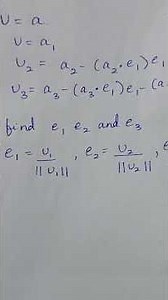 U = a
U = a₁
U₂ = a₂ - (a₂ · e₁) e₁
U₃ = a₃ - (a₃ · e₁) e₁ - (a
find e₁ e₂ and e₃
e₁ = U₁ / ||U₁|| , e₂ = U₂ / ||U₂|| ,